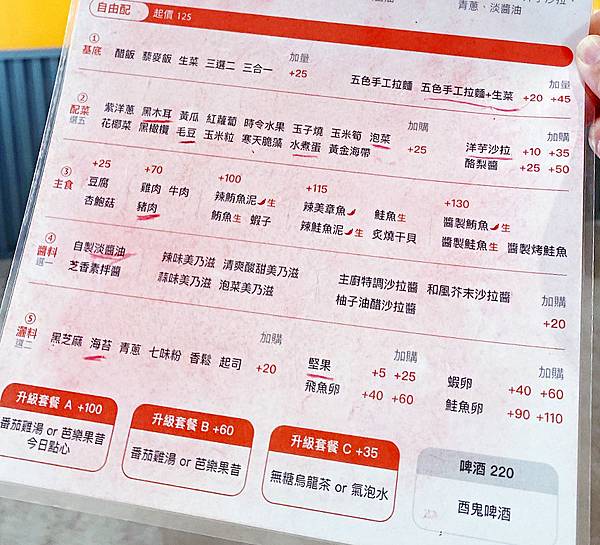 青蔥、淡醬油
自由配 起價 125
① 基底
醋飯 藜麥飯 生菜 三選二 三合一
加量 +25
五色手工拉麵 五色手工拉麵+生菜 +20 +45
加量
② 配菜 選五
紫洋蔥 黑木耳 黃瓜 紅蘿蔔 時令水果 玉子燒 玉米筍 泡菜
花椰菜 黑橄欖 毛豆 玉米粒 寒天脆藻 水煮蛋 黃金海帶
加購 +25
加購
洋芋沙拉 +10 +35
酪梨醬 +25 +50
③ 主食
+25
豆腐
杏鮑菇
+70
雞肉 牛肉
豬肉
+100
辣鮪魚泥 生
鮪魚生 蝦子
+115
辣美章魚 鮭魚生
辣鮭魚泥 生 炙燒干貝
+130
醬製鮪魚 生
醬製鮭魚生 醬製烤鮭魚
④ 醬料 選一
自製淡醬油
芝香素拌醬
辣味美乃滋 清爽酸甜美乃滋
蒜味美乃滋 泡菜美乃滋
主廚特調沙拉醬 和風芥末沙拉醬
柚子油醋沙拉醬
加購 +20
⑤ 灑料 選二
黑芝麻 海苔 青蔥 七味粉 香鬆 起司
加購 +20
加購
堅果 +5 +25
飛魚卵 +40 +60
加購
蝦卵 +40 +60
鮭魚卵 +90 +110
升級套餐 A +100
番茄雞湯 or 芭樂果昔
今日點心
升級套餐 B +60
番茄雞湯 or 芭樂果昔
升級套餐 C +35
無糖烏龍茶 or 氣泡水
啤酒 220
酉鬼啤酒